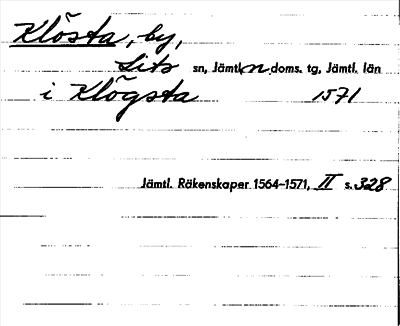 Klösta, by,
Lits sn, Jämtl. n. doms. tg, Jämtl. län
i Klögsta 1571
Jämtl. Räkenskaper 1564-1571, II s. 328